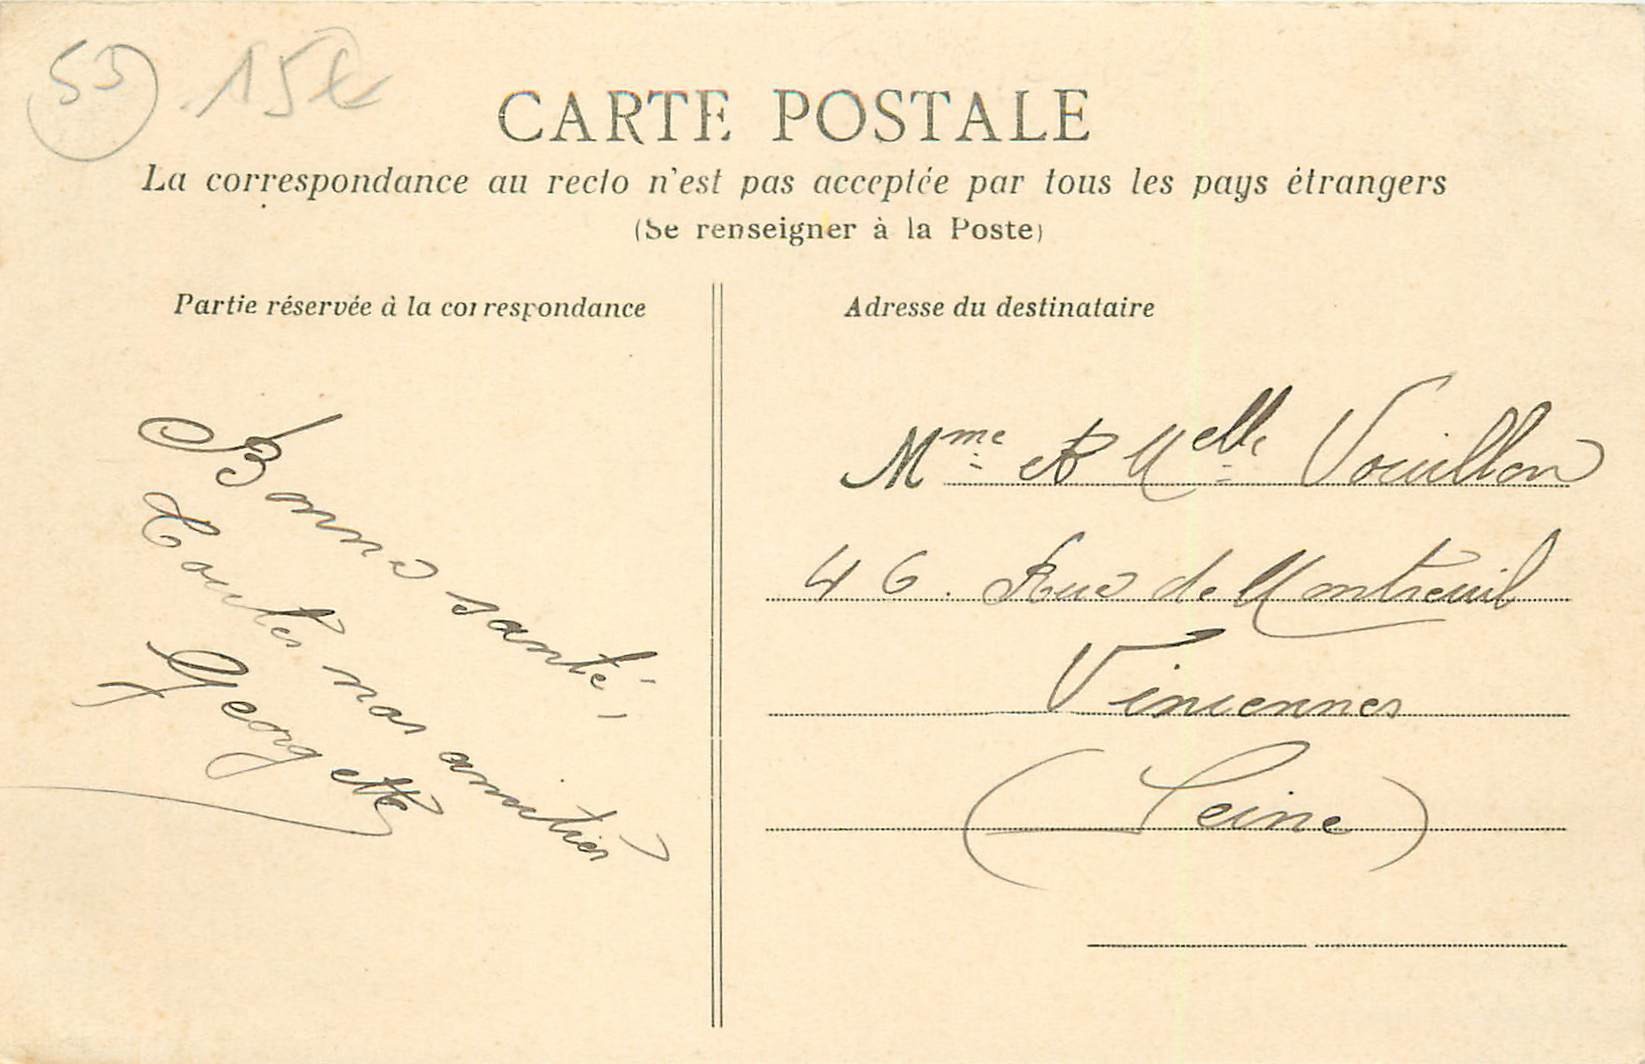 55 15€
CARTE POSTALE
La correspondance au recto n'est pas acceptée par tous les pays étrangers
(Se renseigner à la Poste)
Partie réservée à la correspondance
Bonne santé,
Toutes nos amitiés
Georgette
Adresse du destinataire
Mme et Melle Vouillon
46. Rue de Montreuil
Vincennes
(Seine)